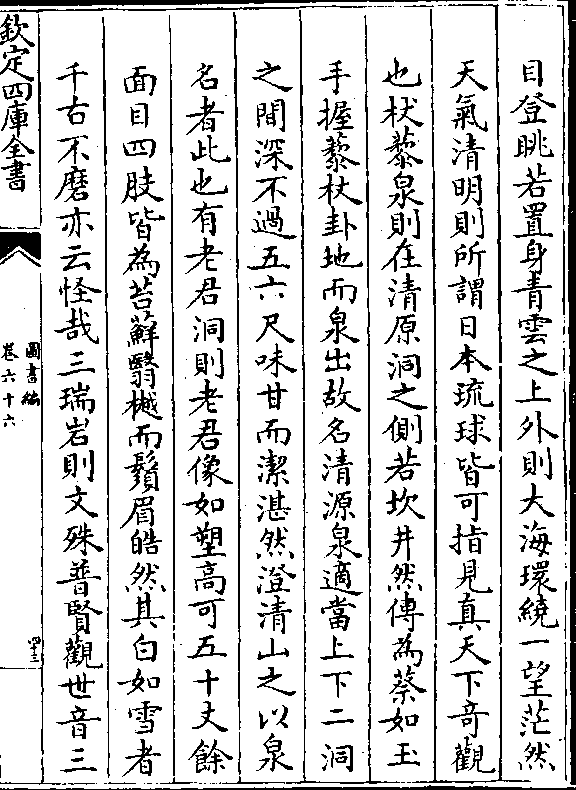 目登眺若置身青雲之上外則大海環繞一望茫然
天氣清明則所謂日本琉球皆可指見真天下竒觀
也杖藜泉則在清原洞之側若坎井然傳為蔡如玉
手握藜杖卦地而泉出故名清源泉適當上下二洞
之間深不過五六尺味甘而潔湛然澄清山之以泉
名者此也有老君洞則老君像如塑高可五十丈餘
面目四肢皆為苔蘚翳樾而鬚眉皓然其白如雪者
千古不磨亦云怪哉三瑞岩則文殊普賢觀世音三
欽定四庫全書
圖書編
卷六十六
四十三